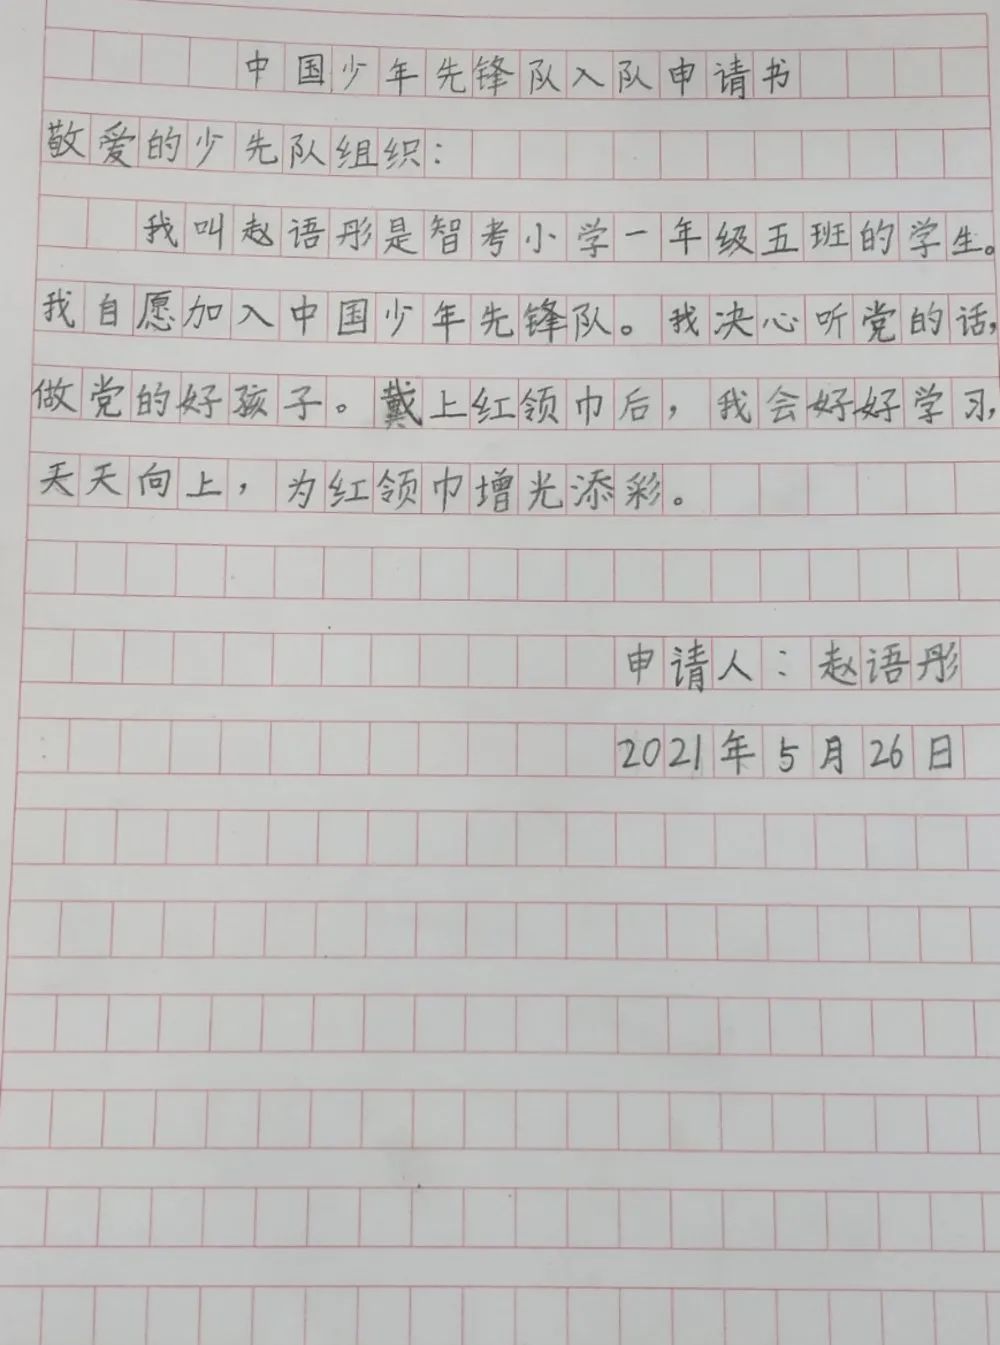 中国少年先锋队入队申请书
敬爱的少先队组织：
我叫赵语彤是智考小学一年级五班的学生。
我自愿加入中国少年先锋队。我决心听党的话，
做党的好孩子。戴上红领巾后，我会好好学习，
天天向上，为红领巾增光添彩。
申请人：赵语彤
2021年5月26日